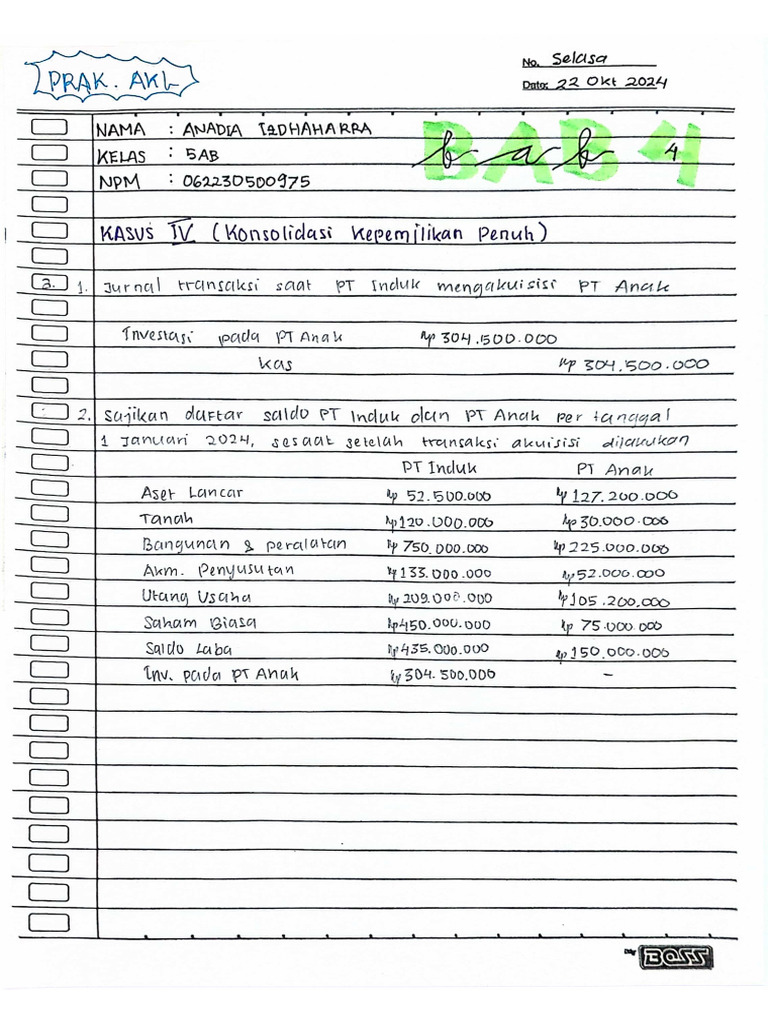 PRAK. AKL
No. Selasa
Date: 22 Okt 2024
NAMA : ANADIA IZDHAHARRA
KELAS : 5AB
NPM : 062230500975
BAB 4
bab 4
KASUS IV (Konsolidasi Kepemilikan Penuh)
3. 1. Jurnal transaksi saat PT Induk mengakuisisi PT Anak
Investasi pada PT Anak Rp 304.500.000
Kas Rp 304.500.000
2. Sajikan daftar saldo PT Induk dan PT Anak per tanggal
1 Januari 2024, sesaat setelah transaksi akuisisi dilakukan
PT Induk PT Anak
Aset Lancar Rp 52.500.000 Rp 127.200.000
Tanah Rp 120.000.000 Rp 30.000.000
Bangunan & peralatan Rp 750.000.000 Rp 225.000.000
Akm. Penyusutan Rp 133.000.000 Rp 52.000.000
Utang Usaha Rp 209.000.000 Rp 105.200.000
Saham Biasa Rp 450.000.000 Rp 75.000.000
Saldo Laba Rp 435.000.000 Rp 150.000.000
Inv. pada PT Anak Rp 304.500.000 -
BOSS